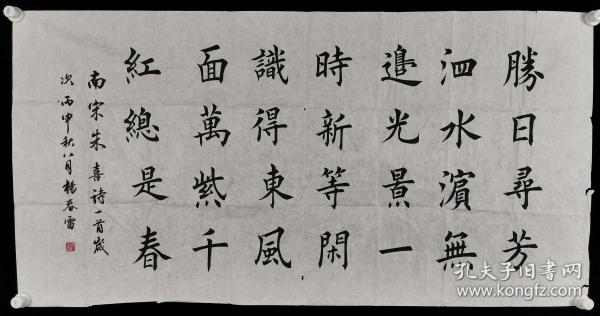 勝日尋芳
泗水濵無
邉光景一
時新等閑
識得東風
面萬紫千
紅總是春
南宋朱喜詩一首歲
次丙申秋八月楊春雷
孔夫子旧書网
www.kongfz.com